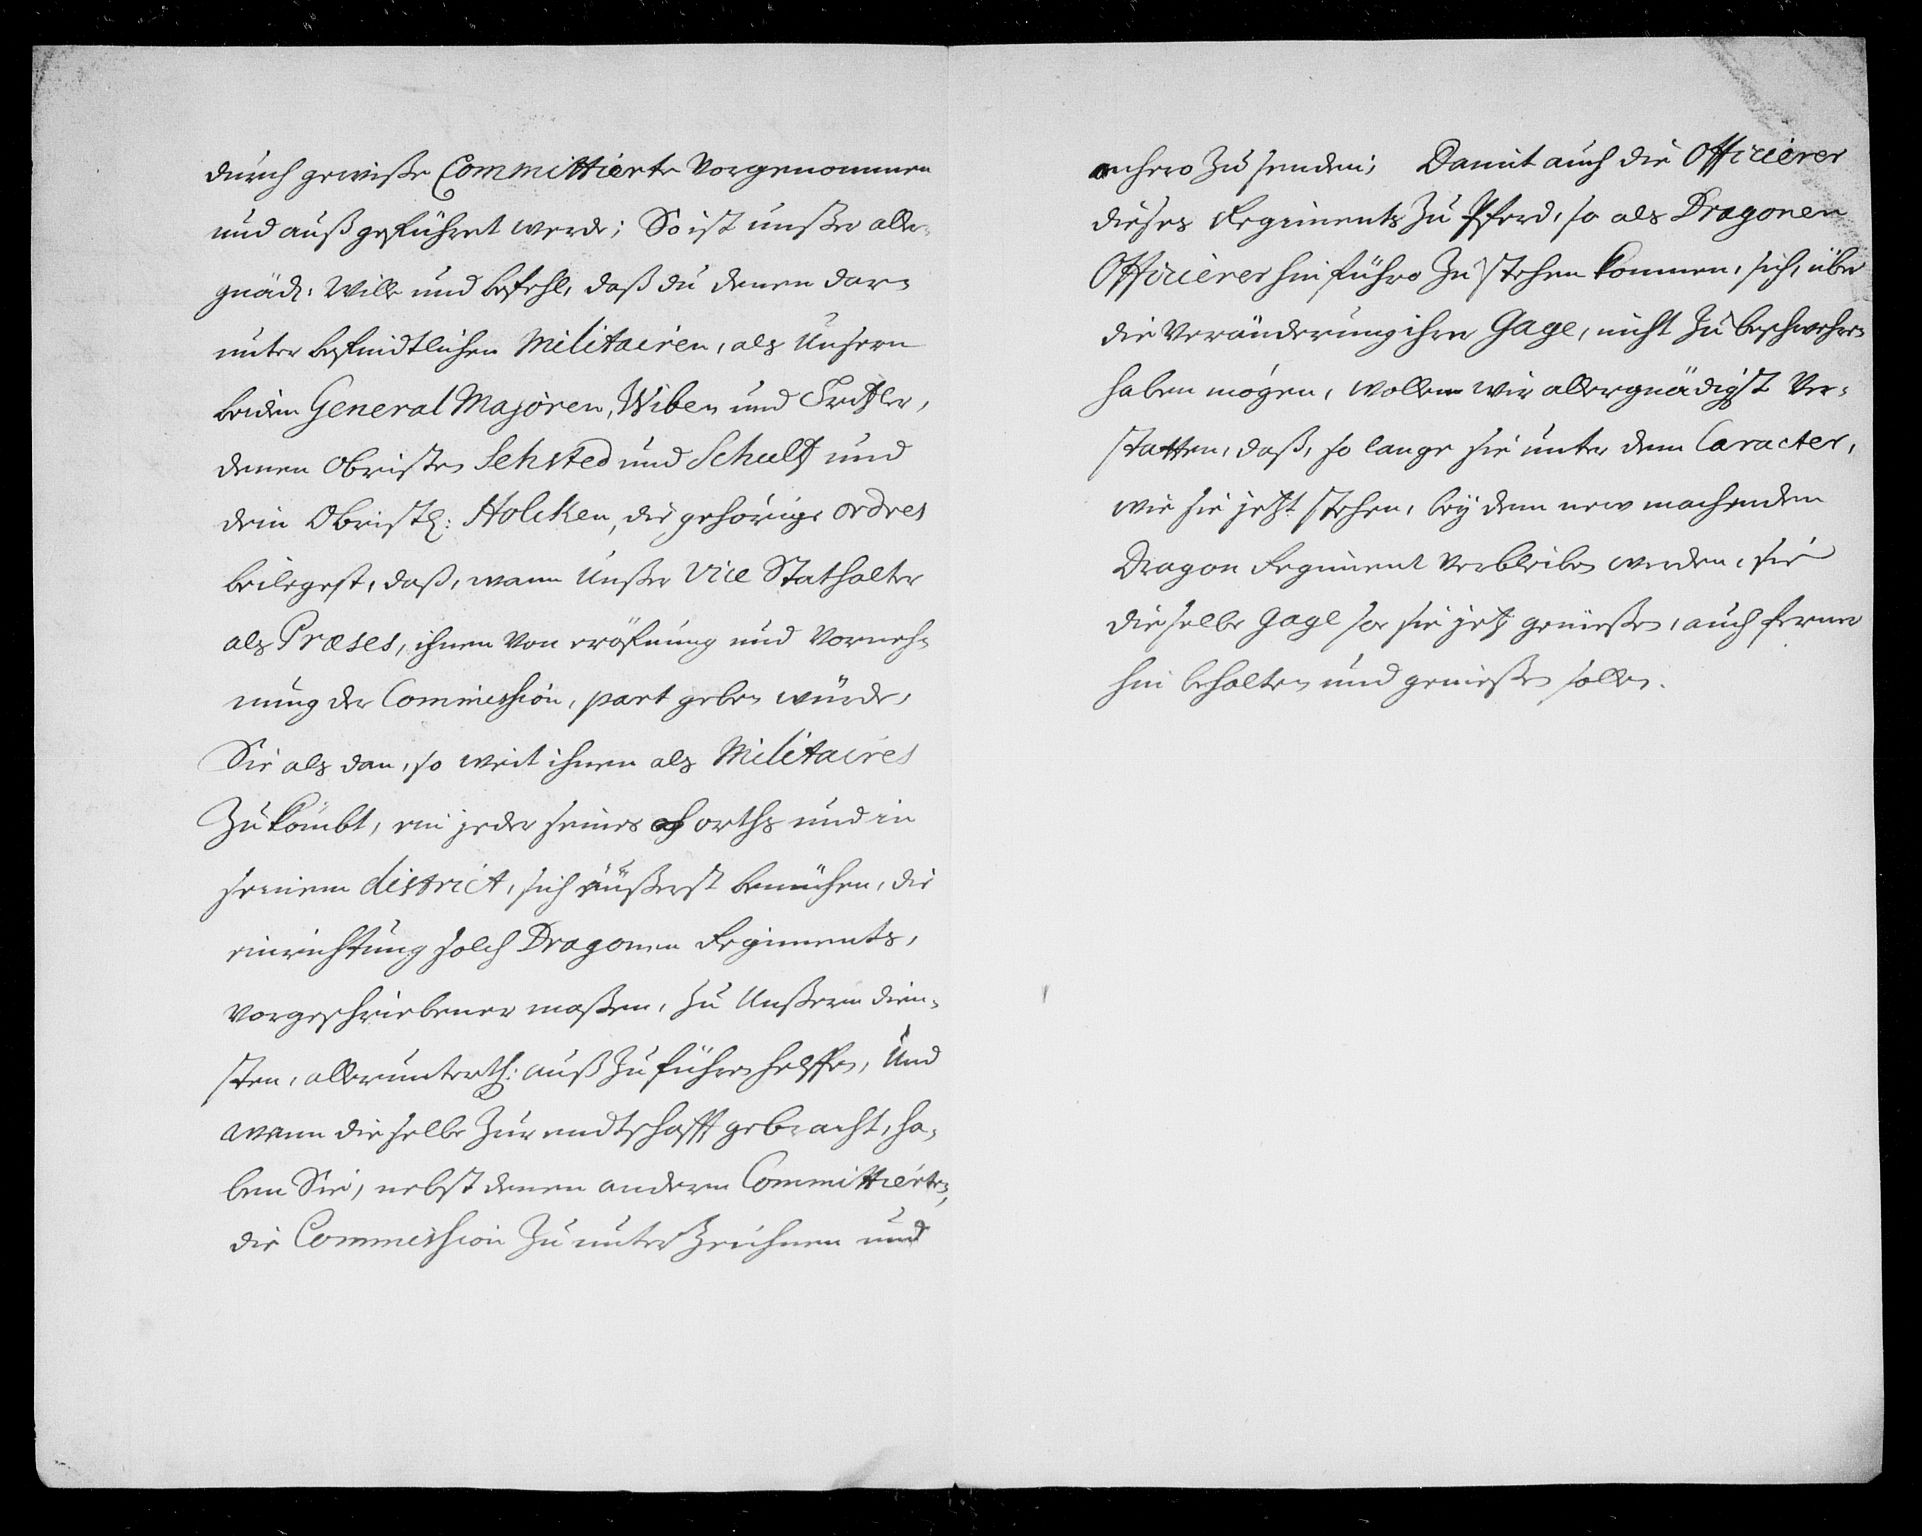 durch gewiße Committierte vorgenommen
und außgeführet werde; So ist unßer aller-
gnäd: Wille und befehl, daß du denen dar-
unter befindtlichen Militairen, als Unsern
beiden General Majoren, Wiben und
denen Obristen Sehsted und Schult und
dem Obristl: Holcken, die gehörige ordres
beilegest, daß, wann Unßer Vice Stathalter
als Præses, ihnen von eröfnung und Vorneh-
mung der Commission, part geben würde,
Sie als dan, so weit ihnen als Militaires
Zukömbt, ein jeder seines orths und in
seinem district, sich äüßerst bemühen, die
einrichtung solch Dragonen Regiments,
vorgeschriebener maßen, zu Unßerm dien-
sten, allerunterth: auß Zu führen helffen, Und
wann dieselbe Zur endtschafft gebracht, ha-
ben Sie, nebst denen andern Committierten,
die Commission Zu unter Zeichnen und
anhero Zu senden; Damit auch die Officierer
dieses Regiments Zu Pferd, so als Dragonen
Officierer hin führo Zu stehen kommen, sich, über
die Veränderung ihrer Gage, nicht Zu beschwehren
haben mögen, wollen wir allergnädigst Ver-
statten, daß, so lange sie unter dem Caracter,
wie sie jetzt stehen, bey dem new machenden
Dragon Regiment Verbleiben werden, sie
dieselbe gage so sie jetz genießen, auch ferner
hin behalten und genießen sollen.